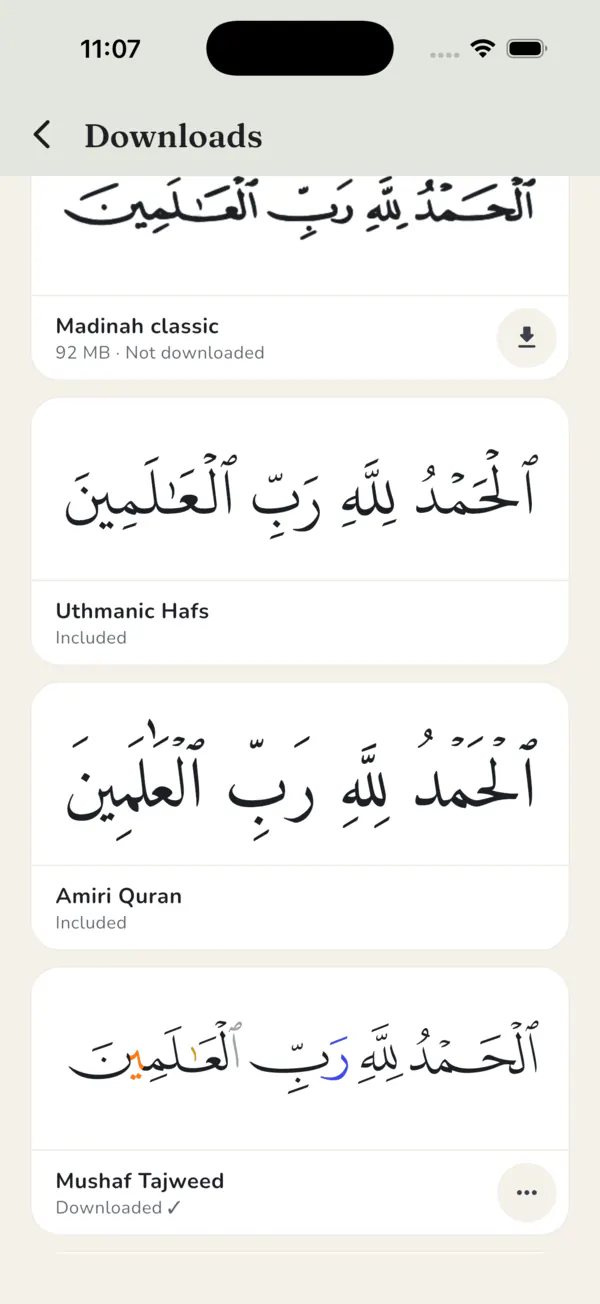 11:07
Downloads
ٱلْحَمْدُ لِلَّهِ رَبِّ ٱلْعَـٰلَمِينَ
Madinah classic
92 MB · Not downloaded
ٱلْحَمْدُ لِلَّهِ رَبِّ ٱلْعَـٰلَمِينَ
Uthmanic Hafs
Included
ٱلْحَمْدُ لِلَّهِ رَبِّ ٱلْعَٰلَمِينَ
Amiri Quran
Included
ٱلْحَمْدُ لِلَّهِ رَبِّ ٱلْعَـٰلَمِينَ
Mushaf Tajweed
Downloaded ✓